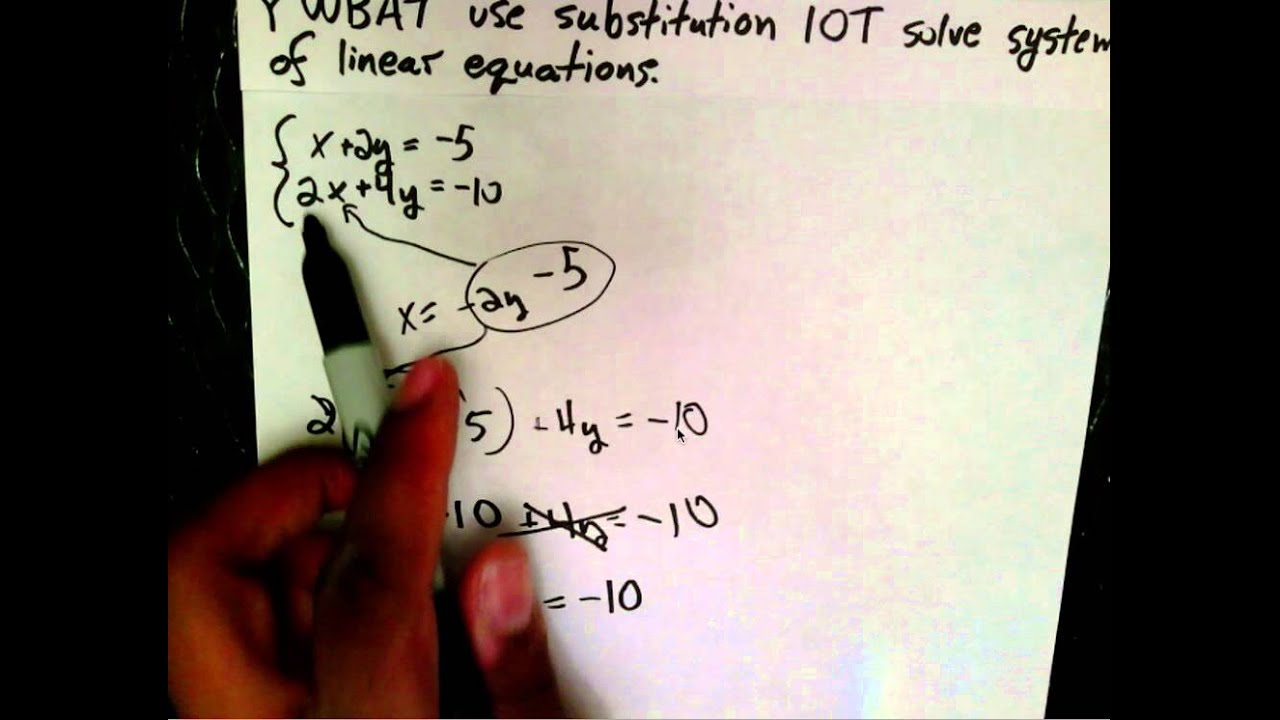 YWBAT use substitution IOT solve system
of linear equations.
x+2y = -5
2x+4y = -10
x= -2y -5
2 5) +4y = -10
10 +4y = -10
= -10